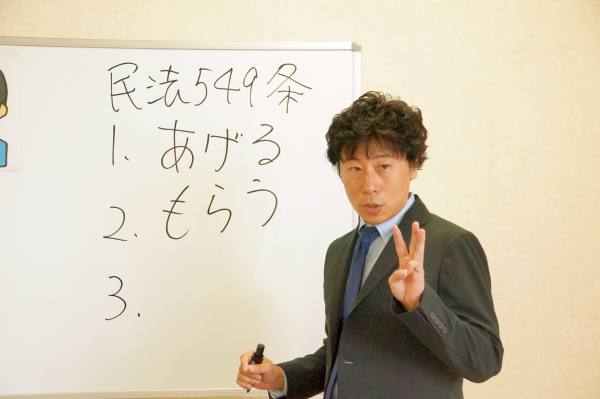 民法549条
1. あげる
2. もらう
3.